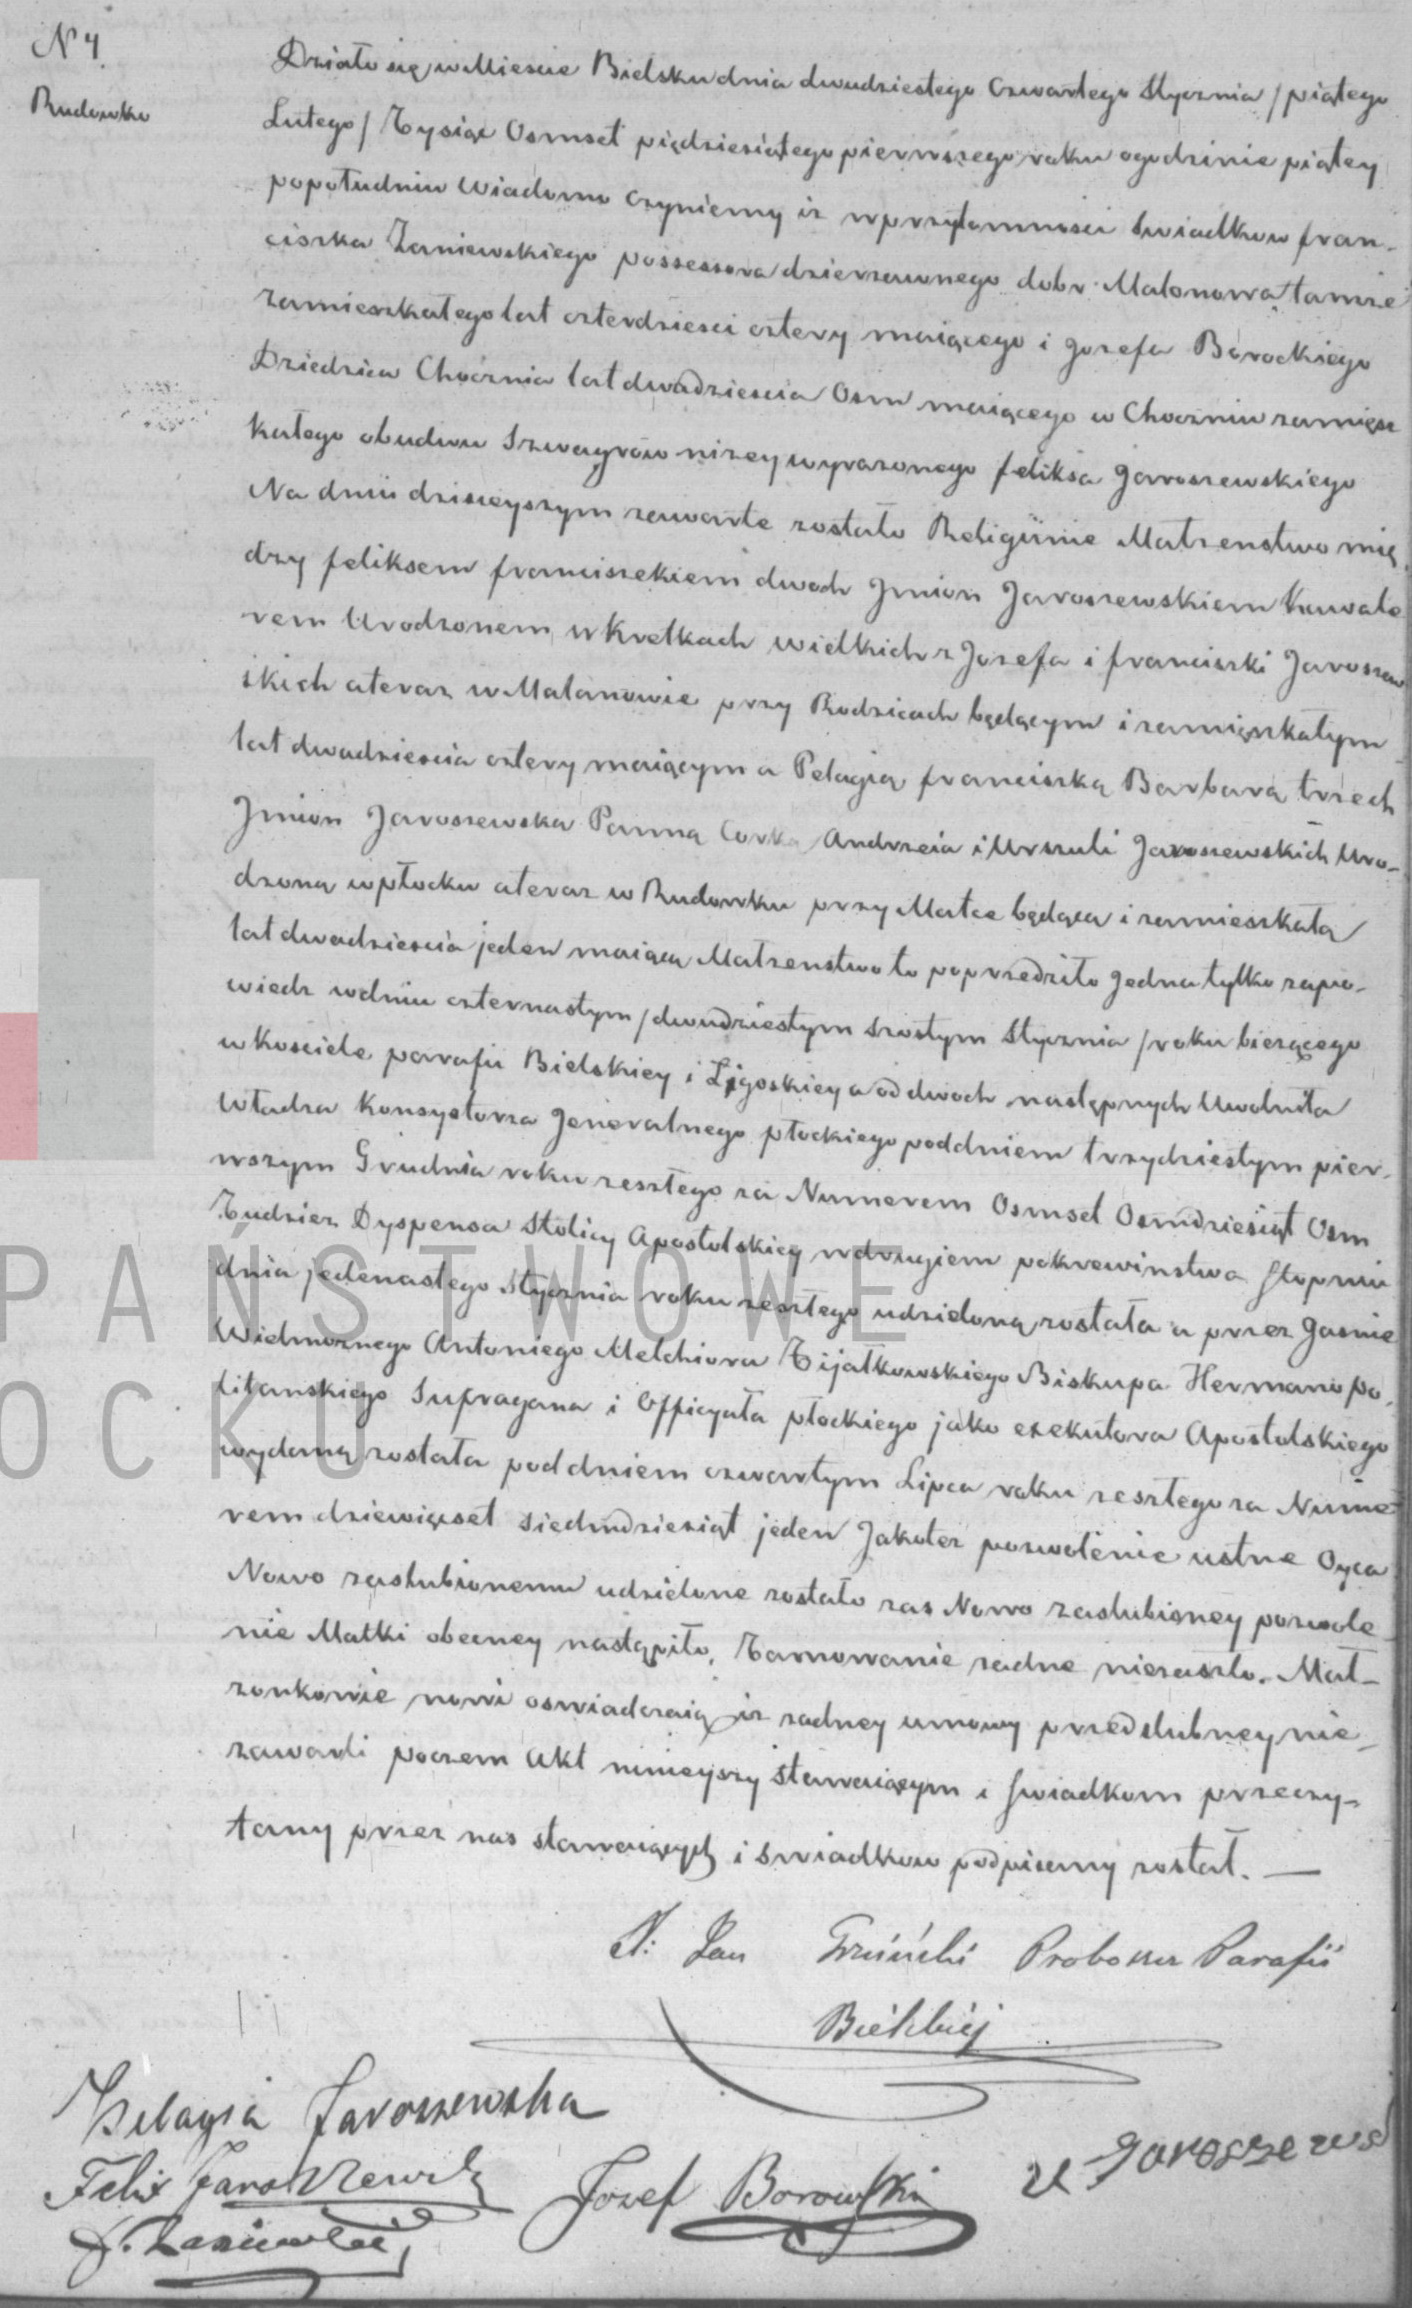 N 4.
Rudowko
Działo się w Mieście Bielsku dnia dwudziestego czwartego Stycznia / piątego
Lutego / Tysiąc Osmset pięćdziesiątego pierwszego roku o godzinie piątey
popołudniu Wiadomo czyniemy iż w przytomności Swiadków fran-
ciszka Zaniewskiego possessora dzierzawnego dobr Malonowa tamże
zamieszkałego lat czterdzieści cztery maiącego i Jozefa Borockiego
Dziedzica Choćznia lat dwadzieścia Osm maiącego w Choczniu zamięsz
kałego obudwu Szwagrów niżey wyrażonego feliksa Jaroszewskiego
Na dniu dzisieyszym zawarte zostało Religiinie Małżenstwo mię
dzy feliksem franciszkiem dwoch Jmion Jaroszewskiem Kawale
rem Urodzonem w Kretkach wielkich z Jozefa i franciszki Jaroszew
skich a teraz w Malanowie przy Rodzicach będącym i zamięszkałym
lat dwadzieścia cztery maiącym a Pelagią franciszką Barbarą trzech
Jmion Jaroszewska Panną Corka Andrzeia i Urszuli Jaroszewskich Uro-
dzoną w płocku a teraz w Rudowku przy Matce będąca i zamieszkała
lat dwadzieścia jeden maiącą Małżenstwo to poprzedziło Jedna tylko zapo-
wiedz w dniu czternastym / dwudziestym szostym Stycznia / roku bieżącego
w Kosciele parafii Bielskiey i Ligoskiey a od dwoch następnych Uwolniła
Władza Konsystorza Jeneralnego płockiego pod dniem trzydziestym pier-
wszym Grudnia roku zeszłego za Numerem Osmset Osmdziesiąt Osm
Tudzież Dyspensa Stolicy Apostolskiey w drugiem pokrewinstwa Stopniu
dnia jedenastego Stycznia roku zeszłego udzieloną została a przez Jasnie
Wielmoznego Antoniego Melchiora Fijałkowskiego Biskupa Hermanopo-
litanskiego Sufragana i Officyała płockiego jako exekutora Apostolskiego
wydaną została pod dniem czwartym Lipca roku zeszłego za Nume
rem dziewięcset siedmdziesiąt jeden Jakotez pozwolenie ustne Oyca
Nowo zaslubionemu udzielone zostało zas Nowo zaslubioney pozwole
nie Matki obecney nastąpiło, Tamowanie żadne niezaszło. Mał-
zonkowie nowi oswiadczaią iz zadney umowy przedslubney nie
zawarli poczem Akt ninieyszy Stawaiącym i Swiadkom przeczy-
tany przez nas stawaiących i swiadkow podpisany został. —
X: Jan Proboszcz Parafii
Bielskiéj
Pelagia Jaroszewska
Felix Jaroszewski
Jozef Borowski
U Jaroszews
F. Zaniewski